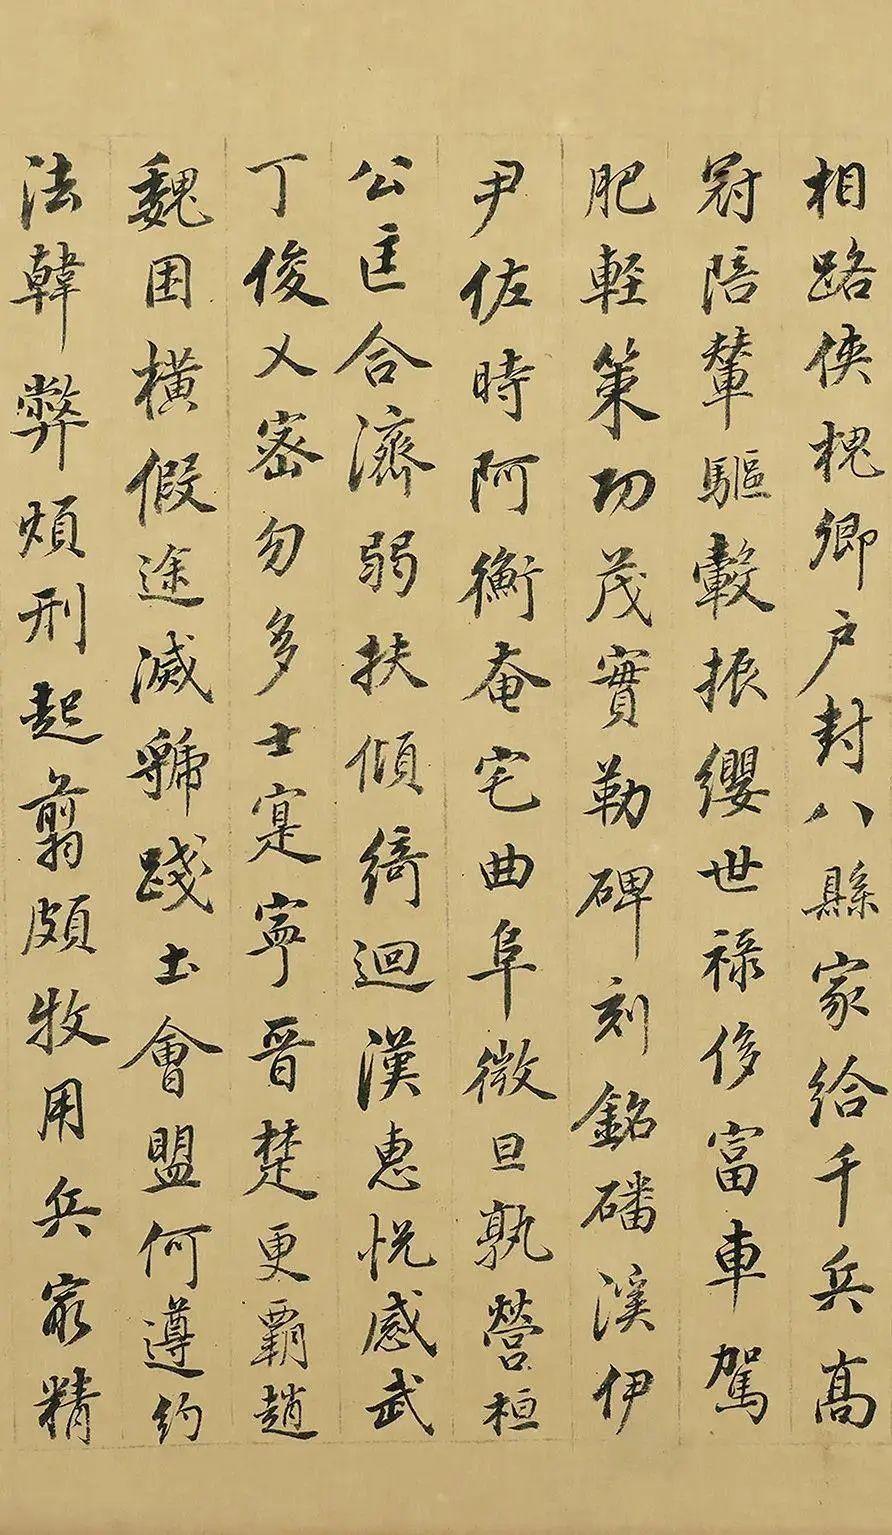 相路俠槐卿户封八縣家給千兵高
冠陪輦驅轂振纓世禄侈富車駕
肥軽策功茂實勒碑刻銘磻溪伊
尹佐時阿衡奄宅曲阜微旦孰營桓
公匡合濟弱扶傾綺迴漢惠悅感武
丁俊乂密勿多士寔寧晉楚更覇趙
魏困橫假途滅虢踐土會盟何遵約
法韓弊煩刑起翦頗牧用兵㝡精